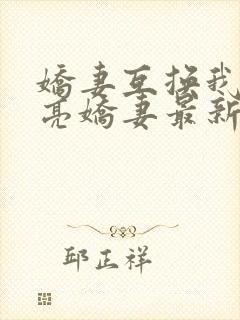 嬌妻互換我
亮嬌妻最新
邱正祥